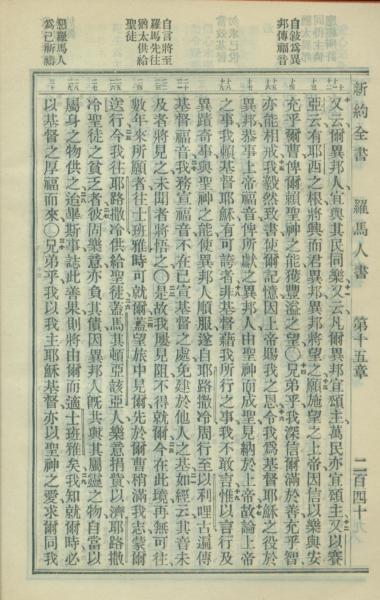 新約全書 羅馬人書 第十五章 二百四十九
自敍為異
邦傳福音
自言將至
羅馬先往
猶太供給
聖徒
懇羅馬人
為己祈禱
又云爾異邦人宜與其民同樂又云凡爾異邦宜頌主萬民亦宜頌主又以賽
亞云有耶西之根將興而君異邦異邦將望之願施望之上帝因信以樂與安
充乎爾曹俾爾賴聖神之能獲豐溢之望○兄弟乎我深信爾滿於善充乎智
亦能相戒我毅然致書使爾記憶因上帝賜我之恩令我為基督耶穌之役於
異邦恭事上帝福音俾所獻之異邦人由聖神而成聖見納於上帝故論上帝
之事我賴基督耶穌有可誇者非基督藉我所行之事我不敢言惟以言行及
異蹟奇事與聖神之能使異邦人順服遂自耶路撒冷周行至以利哩古遍傳
基督福音我務宣福音不在已宣基督之處免建於他人之基如經云其音未
及者將見之未聞者將悟之○是故我屢見阻不得就爾今在此境再無可往
數年來所願者往士班雅時可就爾蓋望旅中見爾先於爾曹稍滿我志蒙爾
送行今我往耶路撒冷供給聖徒蓋馬其頓亞該亞人樂意捐貲以濟耶路撒
冷聖徒之貧乏者彼固樂意亦負其債因異邦人旣共與其屬靈之物自當以
屬身之物供之迨畢斯事誌此善果則將由爾而適士班雅矣我知就爾時必
以基督之厚福而來○兄弟乎我以我主耶穌基督亦以聖神之愛求爾同我